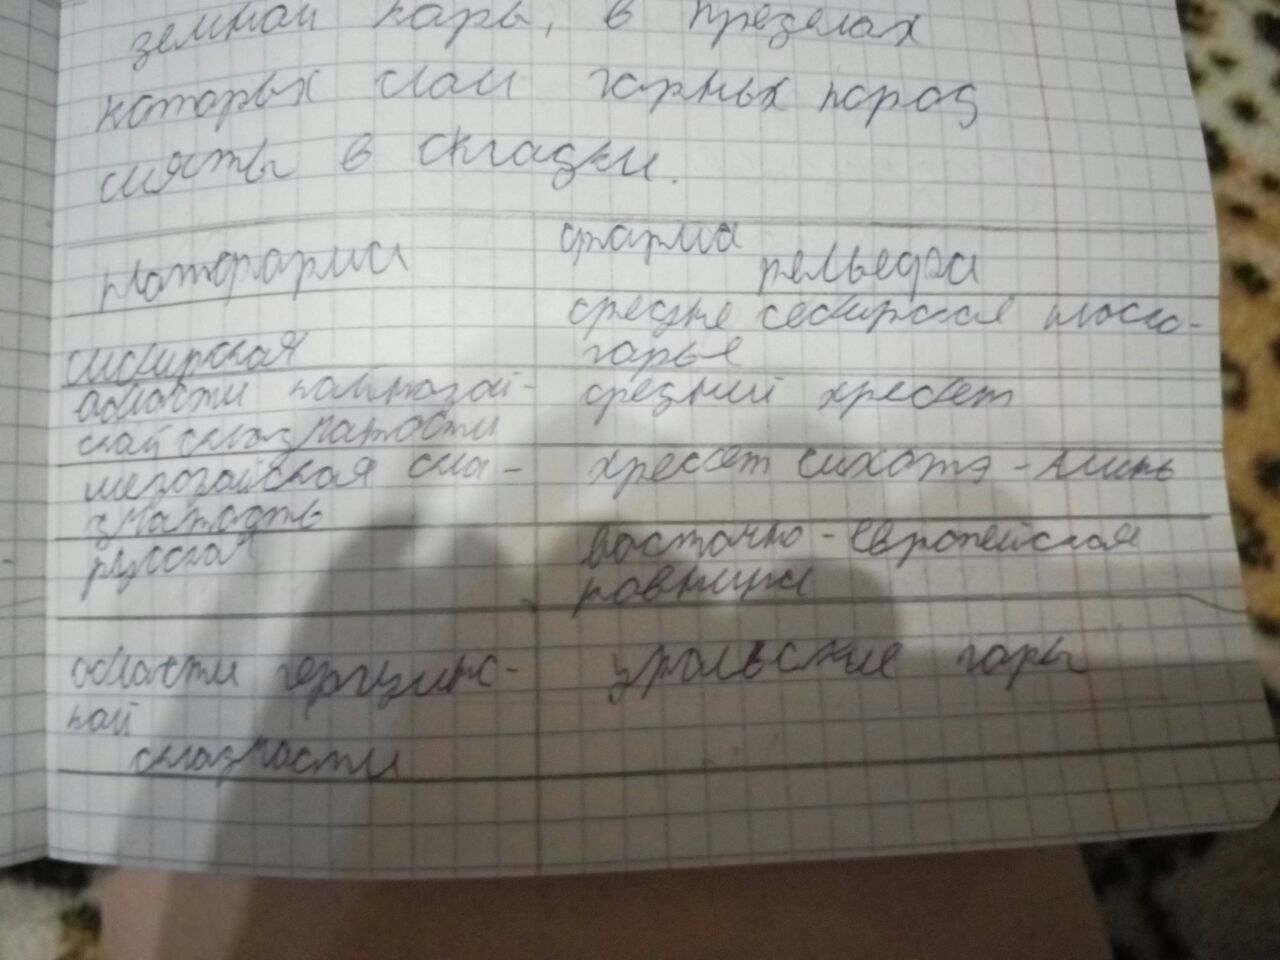 земной коры, в пределах
которых слои горных пород
смяты в складки.
платформа
форма
рельефа
сибирская
средне сибирское плоско-
горье
области кайнозой-
ской складчатости
средний хребет
мезозойская скла-
дчатость
хребет сихотэ-алинь
русская
восточно-европейская
равнина
области герцинс-
кой
складчатости
уральские горы